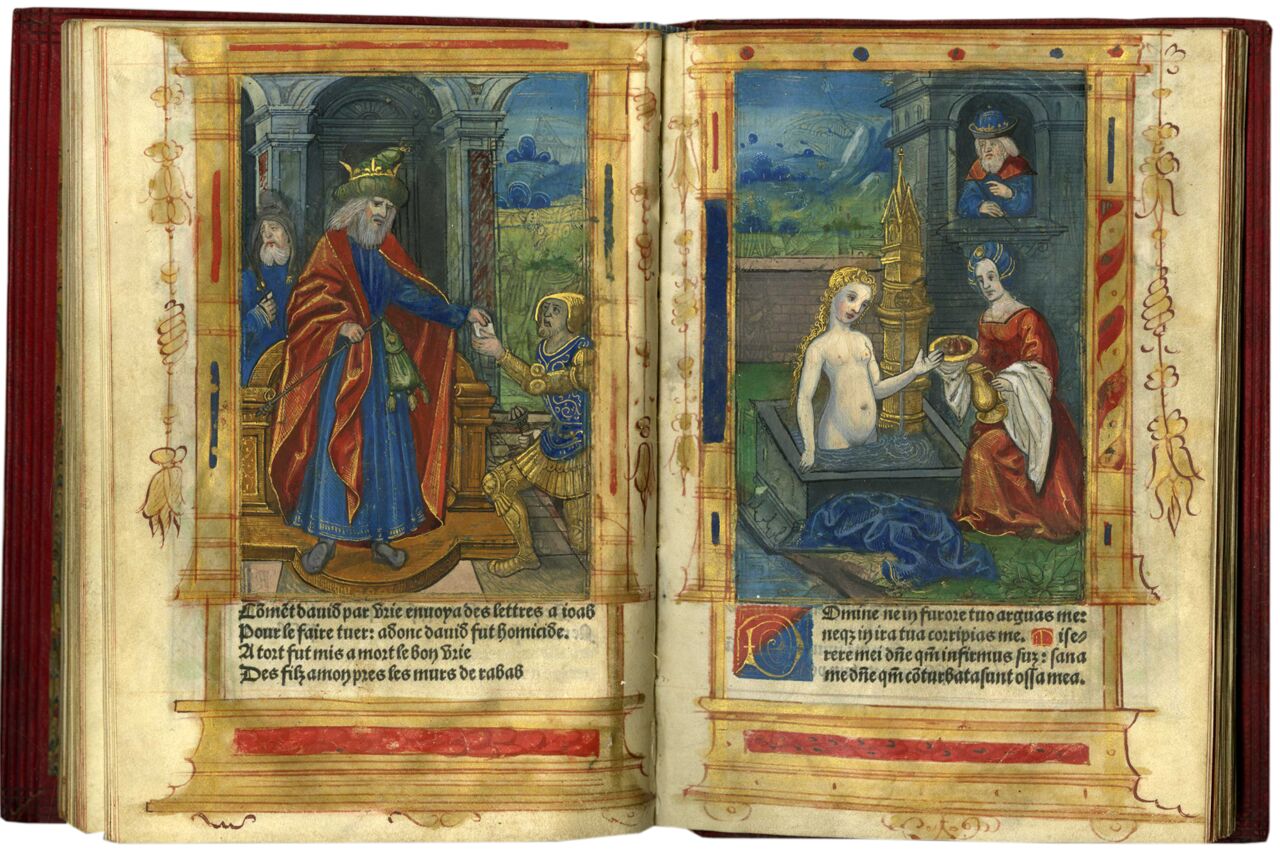 Cõmẽt dauid par Vrie enuoya des lettres a ioab
Pour le faire tuer: adonc dauid fut homicide.
A tort fut mis a mort le bon Vrie
Des filz amon pres les murs de rabab
Dmine ne in furore tuo arguas me:
neqz in ira tua corripias me. Mise⸗
rere mei dñe qm̃ infirmus suz: sana
me dñe qm̃ cõturbata sunt ossa mea.